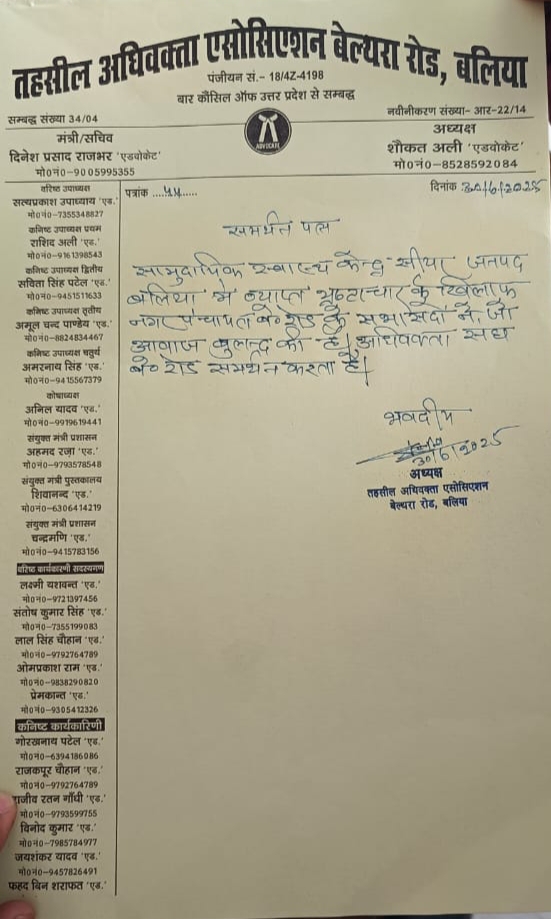 तहसील अधिवक्ता एसोसिएशन बेल्थरा रोड, बलिया
पंजीयन सं.- 18/4Z-4198
बार कौंसिल ऑफ उत्तर प्रदेश से सम्बद्ध
सम्बद्ध संख्या 34/04
नवीनीकरण संख्या- आर-22/14
मंत्री/सचिव
दिनेश प्रसाद राजभर 'एडवोकेट'
मो0नं0-9005995355
ADVOCATE
अध्यक्ष
शौकत अली 'एडवोकेट'
मो0नं0-8528592084
वरिष्ठ उपाध्यक्ष
सत्यप्रकाश उपाध्याय 'एड.'
मो0नं0-7355348827
कनिष्ट उपाध्यक्ष प्रथम
राशिद अली 'एड.'
मो0नं0-9161398543
कनिष्ट उपाध्यक्ष द्वितीय
सविता सिंह पटेल 'एड.'
मो0नं0-9451511633
कनिष्ट उपाध्यक्ष तृतीय
अमूल चन्द पाण्डेय 'एड.'
मो0नं0-8824834467
कनिष्ट उपाध्यक्ष चतुर्थ
अमरनाथ सिंह 'एड.'
मो0नं0-9415567379
कोषाध्यक्ष
अनिल यादव 'एड.'
मो0नं0-9919619441
संयुक्त मंत्री प्रशासन
अहमद रज़ा 'एड.'
मो0नं0-9793578548
संयुक्त मंत्री पुस्तकालय
शिवानन्द 'एड.'
मो0नं0-6306414219
संयुक्त मंत्री प्रशासन
चन्द्रमणि 'एड.'
मो0नं0-9415783156
वरिष्ट कार्यकारिणी सदस्यगण
लक्ष्मी यशवन्त 'एड.'
मो0नं0-9721397456
संतोष कुमार सिंह 'एड.'
मो0नं0-7355199083
लाल सिंह चौहान 'एड.'
मो0नं0-9792764789
ओमप्रकाश राम 'एड.'
मो0नं0-9838290820
प्रेमकान्त 'एड.'
मो0नं0-9305412326
कनिष्ट कार्यकारिणी
गोरखनाथ पटेल 'एड.'
मो0नं0-6394186086
राजकपूर चौहान 'एड.'
मो0नं0-9792764789
राजीव रतन गाँधी 'एड.'
मो0नं0-9793599755
विनोद कुमार 'एड.'
मो0नं0-7985784977
जयशंकर यादव 'एड.'
मो0नं0-9457826491
फहद बिन शराफत 'एड.'
पत्रांक ....44......
दिनांक 30/6/2025
समर्थन पत्र
सामुदायिक स्वास्थ्य केन्द्र सीयर जनपद
बलिया में व्याप्त भ्रष्टाचार के खिलाफ
नगर पंचायत बे० रोड के सभासदों ने, जो
आवाज बुलन्द की है। अधिवक्ता संघ
बे० रोड समर्थन करता है।
भवदीय
30/6/2025
अध्यक्ष
तहसील अधिवक्ता एसोसिएशन
बेल्थरा रोड, बलिया